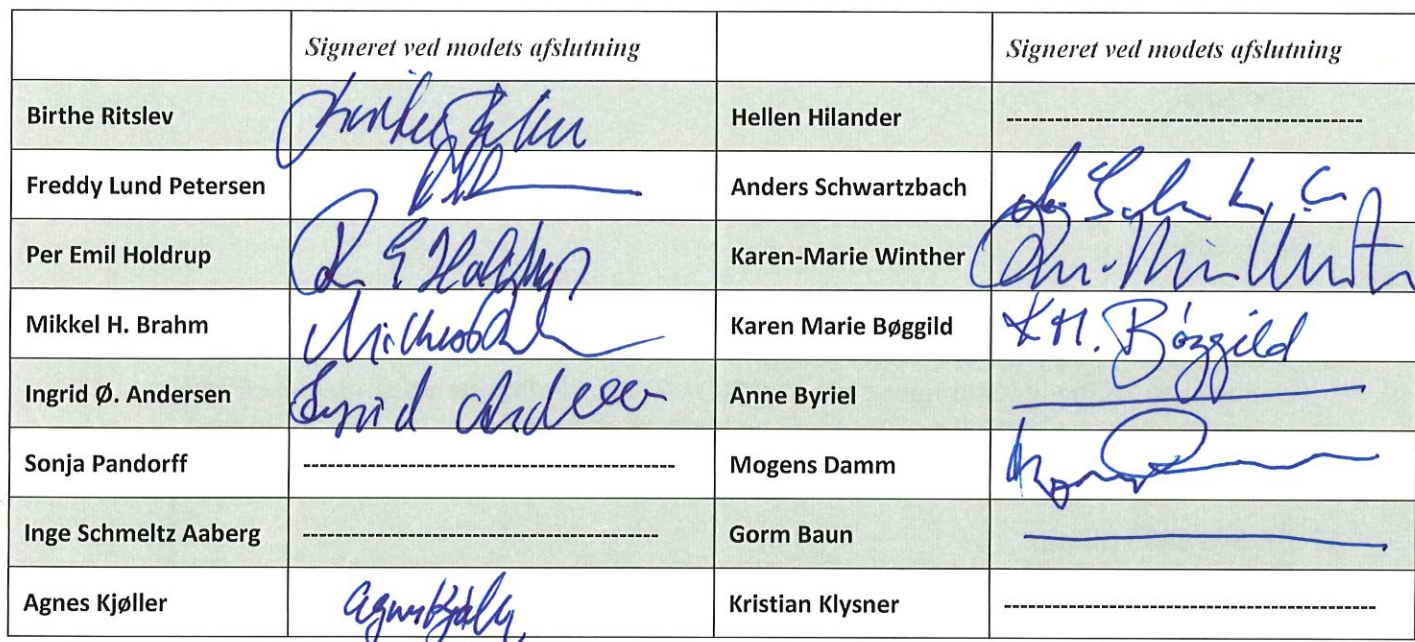 Signeret ved mødets afslutning Signeret ved mødets afslutning
Birthe Ritslev Hellen Hilander ----------------------------------------
Freddy Lund Petersen Anders Schwartzbach
Per Emil Holdrup Karen-Marie Winther
Mikkel H. Brahm Karen Marie Bøggild K.M. Bøggild
Ingrid Ø. Andersen Ingrid Andersen Anne Byriel
Sonja Pandorff ------------------------------------------ Mogens Damm
Inge Schmeltz Aaberg ---------------------------------------- Gorm Baun
Agnes Kjøller Agnes Kjøller Kristian Klysner ------------------------------------------